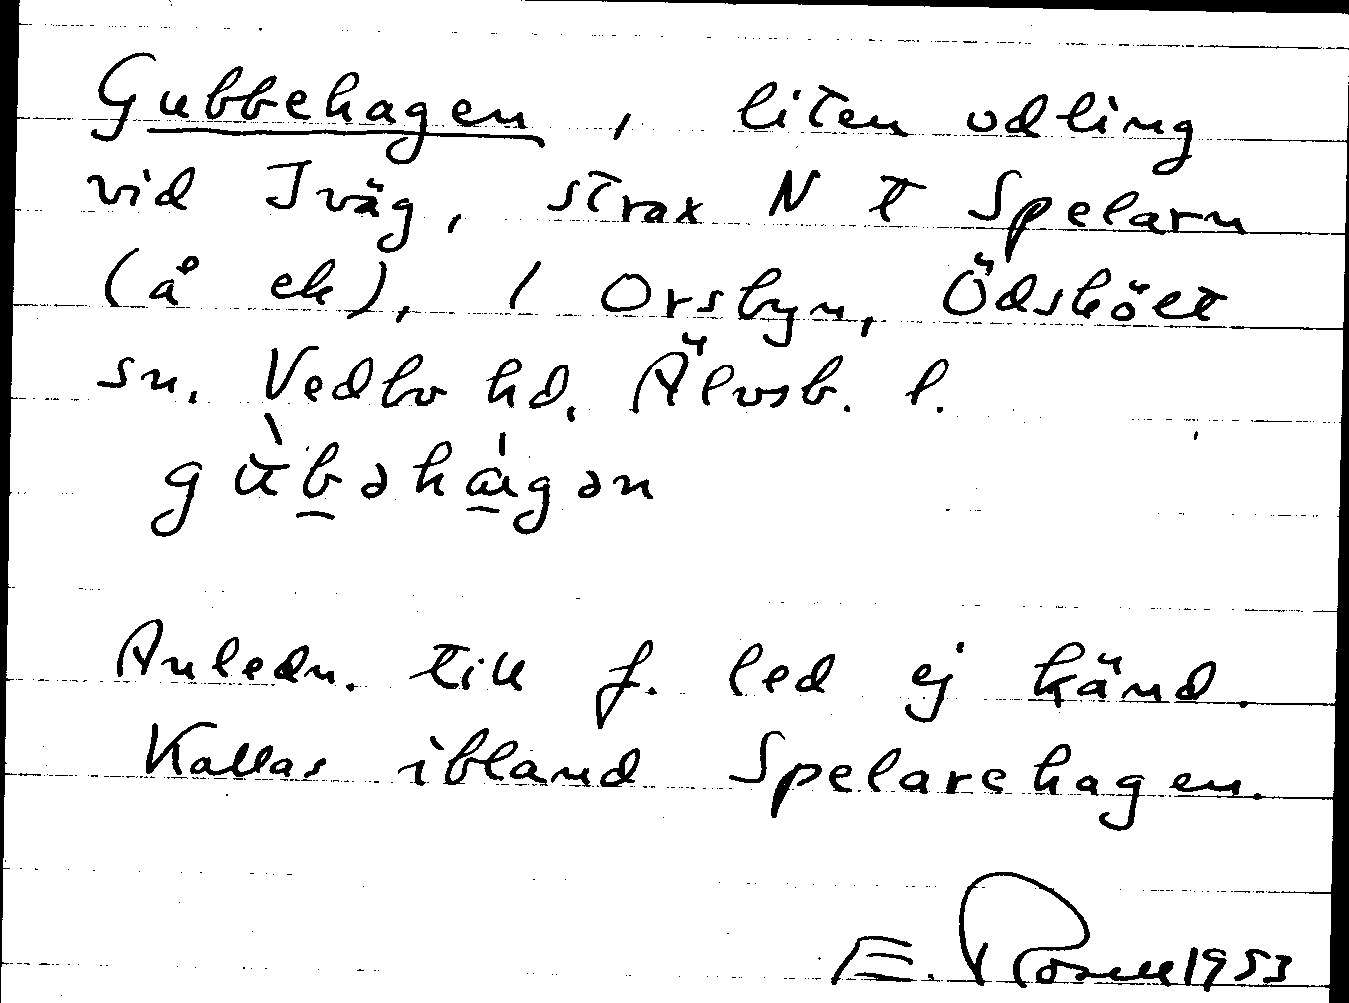 Gubbehagen, liten odling
vid Iväg, strax N t Spelarn
(å ek), / Orsbyn, Ödskölt
sn. Vedbo hd. Älvsb. l.
gùbəhágən
Anledn. till f. led ej känd.
Kallas ibland Spelarehagen.
E. Rosell 1953